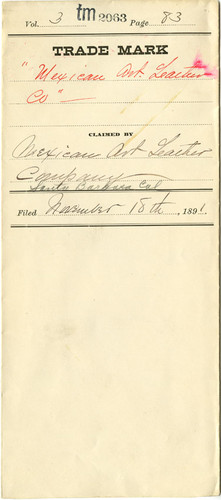 Vol. 3 tm 2063 Page 83
TRADE MARK
"Mexican Art Leather
Co"
CLAIMED BY
Mexican Art Leather
Company
Santa Barbara Cal
Filed November 18th 1891